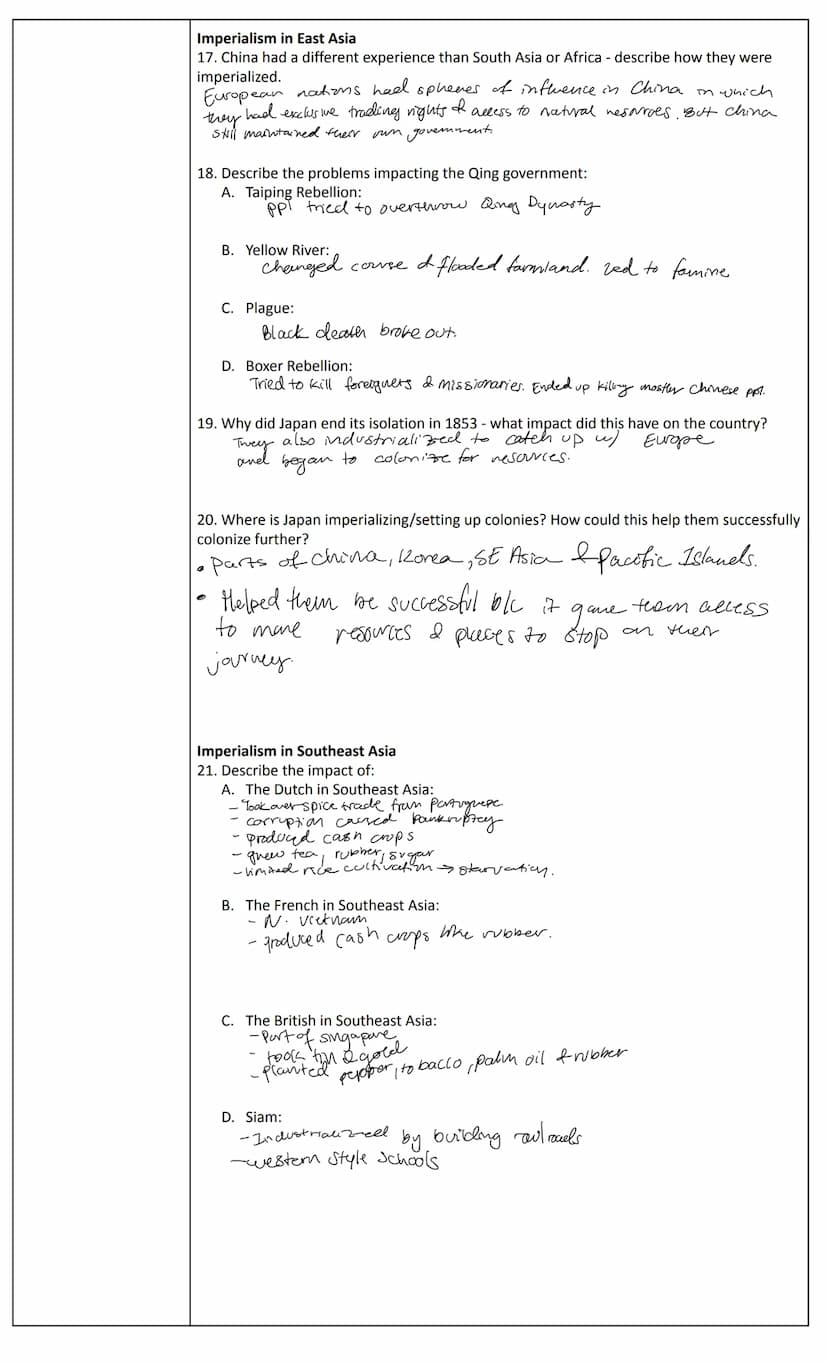 Imperialism in East Asia
17. China had a different experience than South Asia or Africa - describe how they were
imperialized.
European nations had spheres of influence in China in which
they had exclusive trading rights & access to natural resources. But China
still maintained their own government.
18. Describe the problems impacting the Qing government:
A. Taiping Rebellion:
ppl tried to overthrow Qing Dynasty
B. Yellow River:
changed course & flooded farmland. Led to famine
C. Plague:
Black death broke out.
D. Boxer Rebellion:
Tried to kill foreigners & missionaries. Ended up killing mostly Chinese ppl.
19. Why did Japan end its isolation in 1853 - what impact did this have on the country?
They also industrialized to catch up w/ Europe
and began to colonize for resources.
20. Where is Japan imperializing/setting up colonies? How could this help them successfully
colonize further?
• Parts of China, Korea, SE Asia & Pacific Islands.
• Helped them be successful b/c it gave them access
to more resources & places to stop on their
journey.
Imperialism in Southeast Asia
21. Describe the impact of:
A. The Dutch in Southeast Asia:
- Took over spice trade from Portuguese
- corruption caused bankruptcy
- produced cash crops
- grew tea, rubber, sugar
- limited rice cultivation → starvation.
B. The French in Southeast Asia:
- N. Vietnam
- produced cash crops like rubber.
C. The British in Southeast Asia:
- Port of Singapore
- took tin & gold
- planted pepper, tobacco, palm oil & rubber
D. Siam:
- Industrialized by building railroads
- western style schools